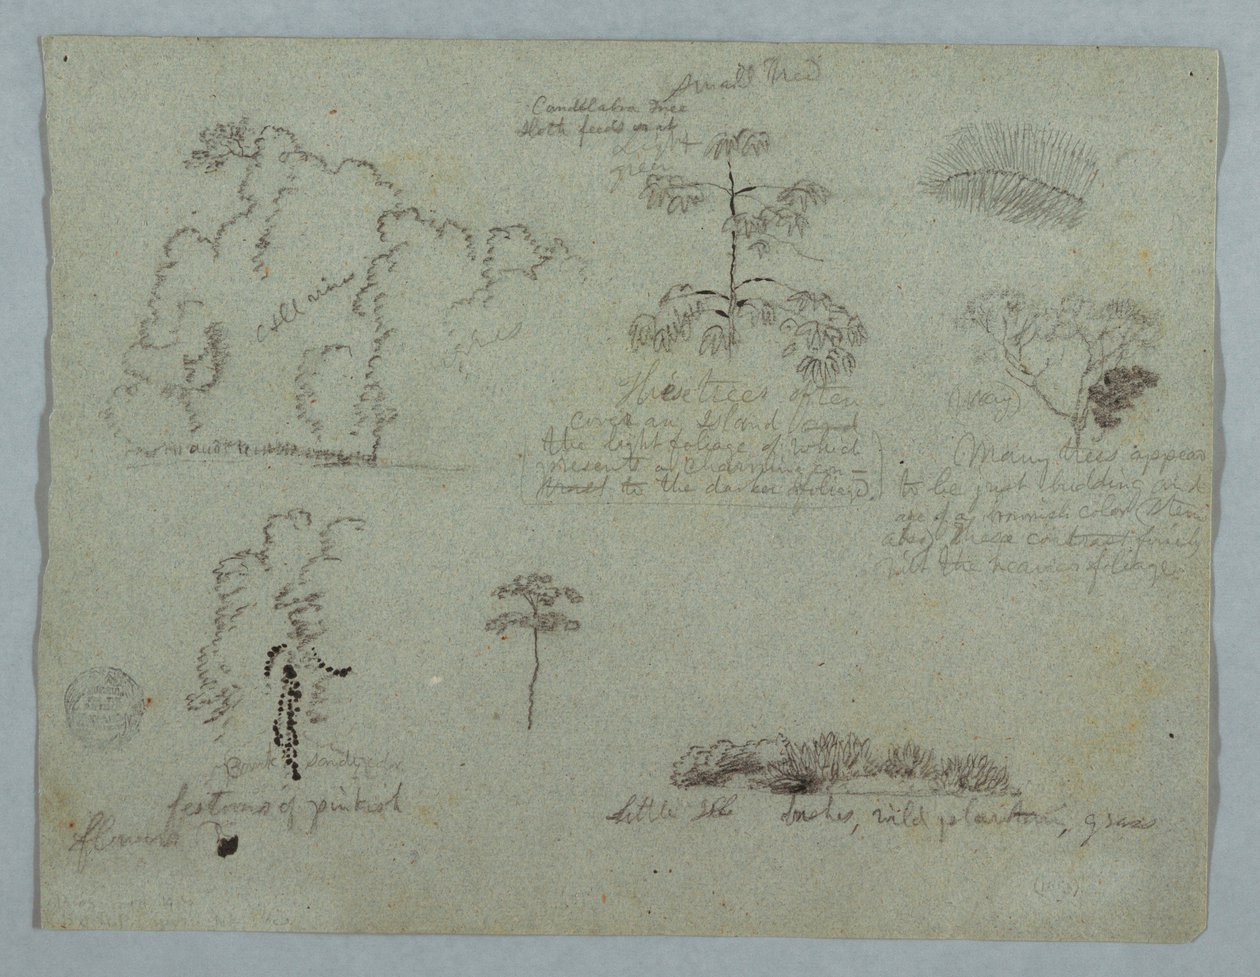 Small Tree
Candelabra Tree
sloth feeds on it
Light
green
All vine
These trees often
cover an Island (and
the light foliage of which
presents a charming con-
trast to the darker foliage).
Many trees appear
to be just budding and
are of a brownish color (stem
also) these contrast finely
with the heavier foliage
festoons of pinkish
flowers
little Isle bushes, wild plantain, grass